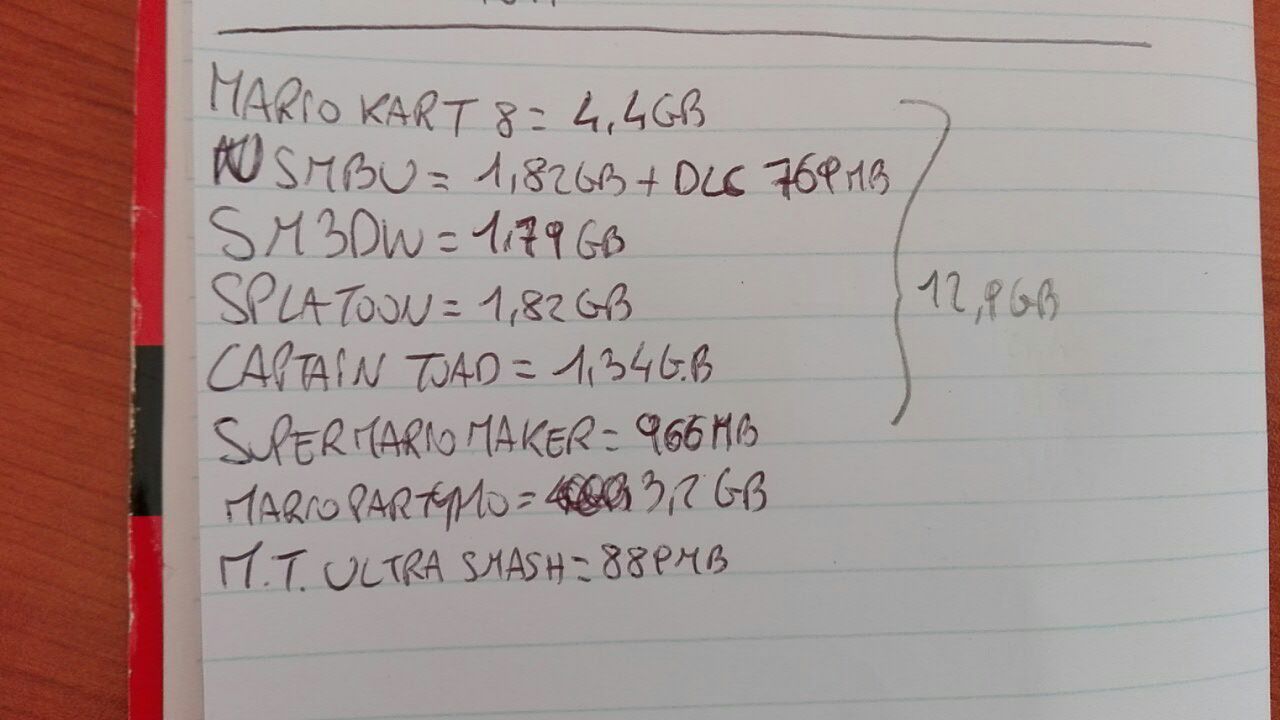 MARIO KART 8 = 4,4GB
NSMBU = 1,82GB + DLC 769MB
SM3DW = 1,79GB
SPLATOON = 1,82GB
12,9GB
CAPTAIN TOAD = 1,34GB
SUPER MARIO MAKER = 966MB
MARIO PARTY 10 = 3,2 GB
M.T. ULTRA SMASH = 889MB